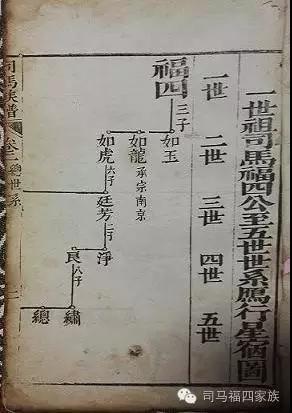 一世祖司馬福四公至五世世系鴈行星宿圖
一世
二世
三世
四世
五世
福四
三子
如玉
如龍
承宗南京
如虎
六子
廷芳
二子
淨
良
八子
繡
總
司馬族譜
卷二
世系
二
司马福四家族